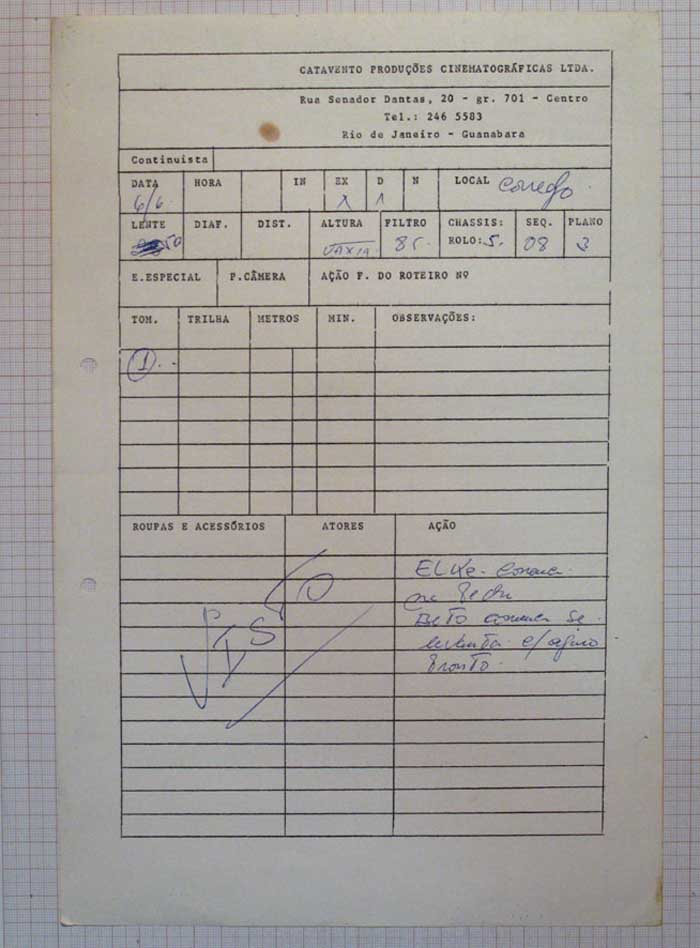 CATAVENTO PRODUÇÕES CINEMATOGRÁFICAS LTDA.
Rua Senador Dantas, 20 - gr. 701 - Centro
Tel.: 246 5583
Rio de Janeiro - Guanabara
Continuista
DATA HORA IN EX D N LOCAL
6/6 X
LENTE DIAF. DIST. ALTURA FILTRO CHASSIS: SEQ. PLANO
50 85 ROLO: 5. 08 3
E.ESPECIAL P.CÂMERA AÇÃO F. DO ROTEIRO Nº
TOM. TRILHA METROS MIN. OBSERVAÇÕES:
1
ROUPAS E ACESSÓRIOS ATORES AÇÃO
VISTO
ELKE
BETO se
levanta c/
Pronto.